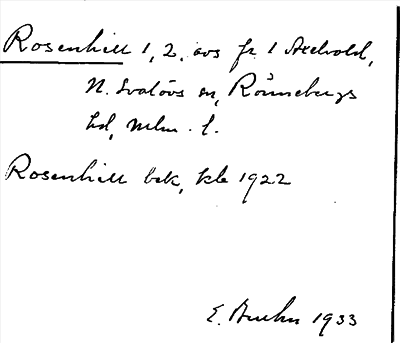 Rosenhill 1, 2, avs fr 1 Axelvold,
N. Svalövs sn, Rönnebergs
hd, Mlm. l.
Rosenhill bek, kb 1922
E. 1933